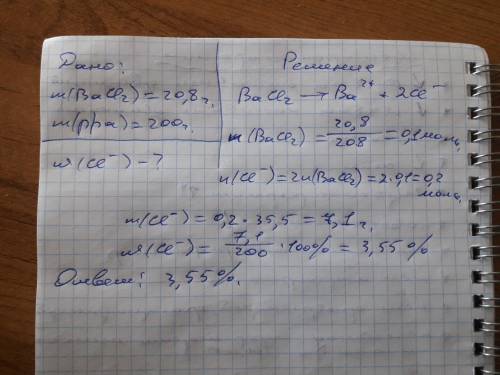 Дано:
m(BaCl₂) = 20,8 г.
m(р-ра) = 200г.
ω(Cl⁻) - ?
Решение
BaCl₂ → Ba²⁺ + 2Cl⁻
n(BaCl₂) = 20,8/208 = 0,1 моль.
n(Cl⁻) = 2n(BaCl₂) = 2·0,1 = 0,2 моль.
m(Cl⁻) = 0,2 · 35,5 = 7,1 г.
ω(Cl⁻) = 7,1/200 · 100% = 3,55%
Ответ: 3,55%.